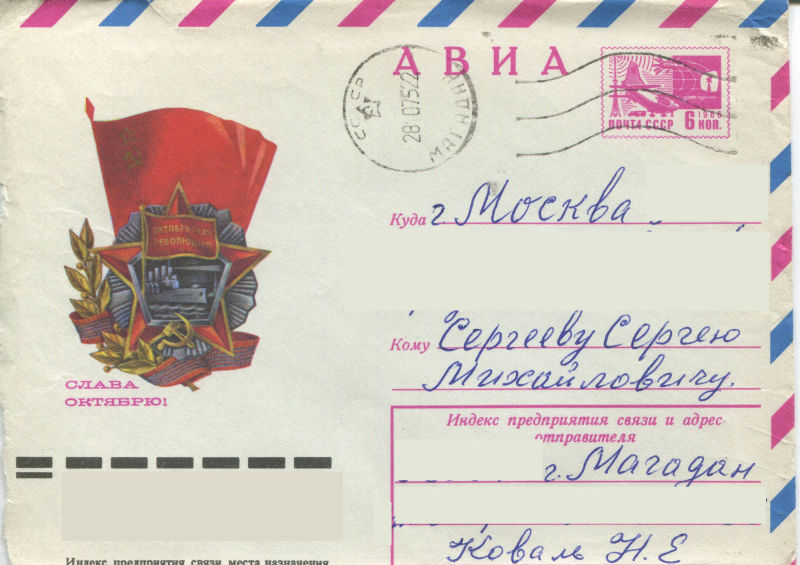 АВИА
СССР
28 0752 2
МАГАДАН
1966
ПОЧТА СССР 6 КОП.
ОКТЯБРЬСКАЯ
РЕВОЛЮЦИЯ
СЛАВА
ОКТЯБРЮ!
Куда г. Москва
Кому Сергееву Сергею
Михайловичу.
Индекс предприятия связи и адрес
отправителя
г. Магадан
Коваль Н. Е
Индекс предприятия связи места назначения